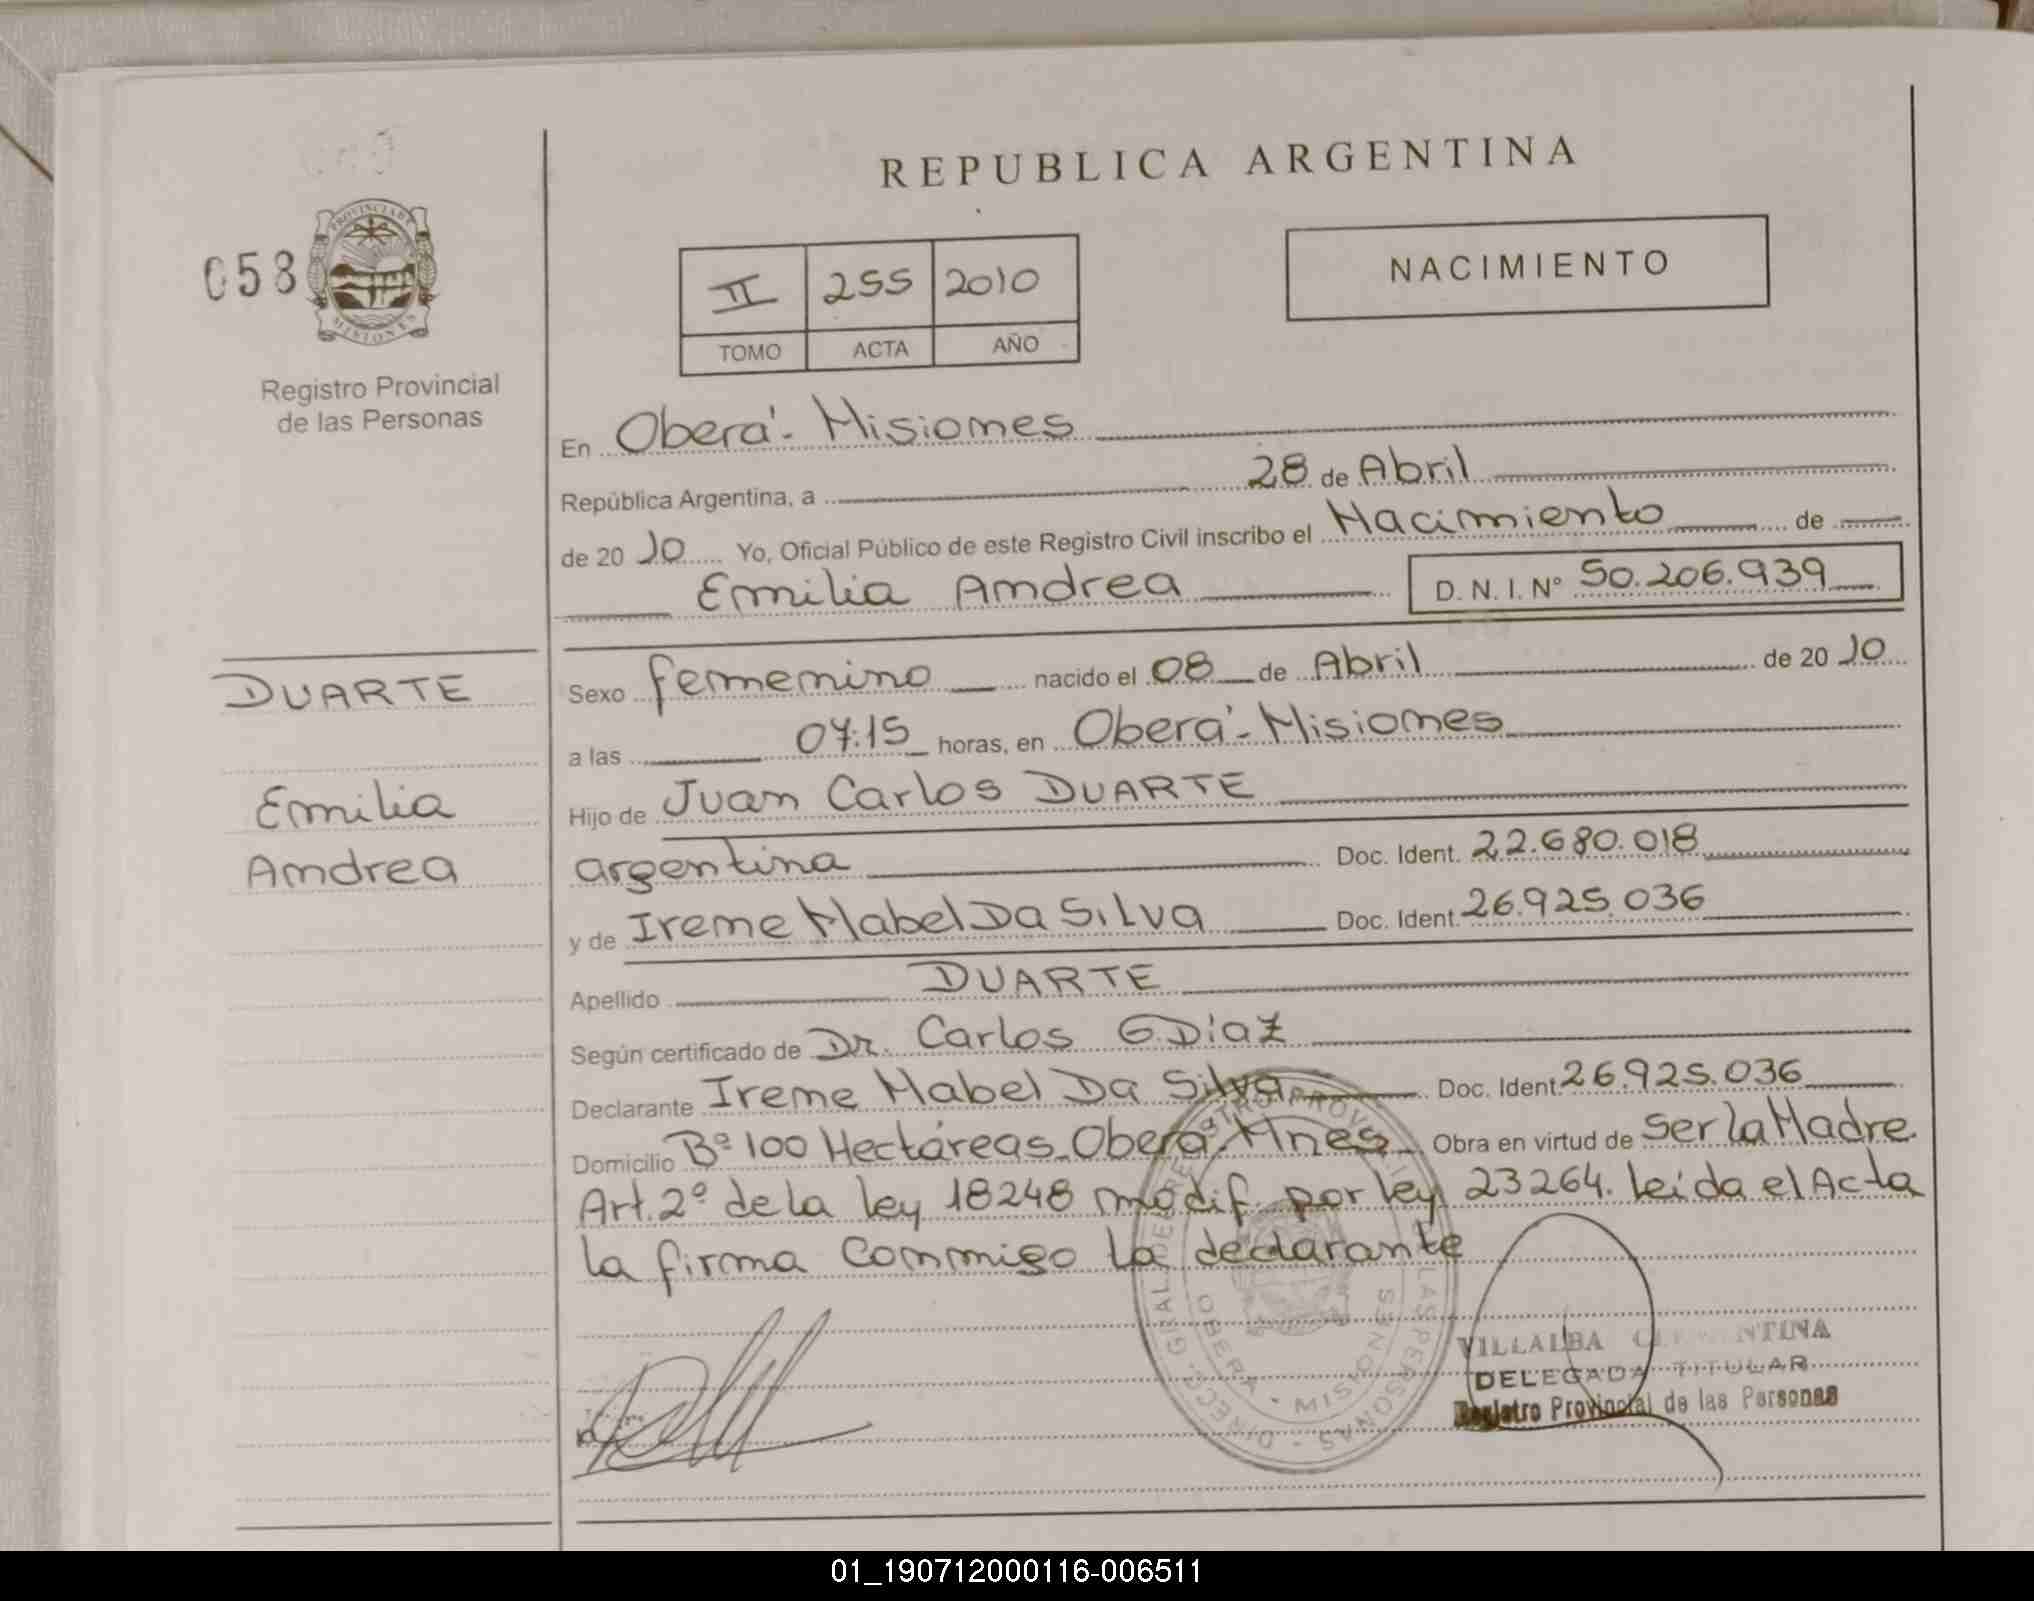 REPUBLICA ARGENTINA
058
PROVINCIA DE
MISIONES
Registro Provincial
de las Personas
II 255 2010
TOMO ACTA AÑO
NACIMIENTO
En Oberá - Misiones
República Argentina, a 28 de Abril
de 20 10 Yo, Oficial Público de este Registro Civil inscribo el Nacimiento de
Emilia Andrea D. N. I. Nº 50.206.939
DUARTE
Emilia
Andrea
Sexo femenino nacido el 08 de Abril de 20 10
a las 07:15 horas, en Oberá - Misiones
Hijo de Juan Carlos DUARTE
argentina Doc. Ident. 22.680.018
y de Irene Mabel Da Silva Doc. Ident. 26.925.036
Apellido DUARTE
Según certificado de Dr. Carlos G. Diaz
Declarante Irene Mabel Da Silva Doc. Ident. 26.925.036
Domicilio Bº 100 Hectáreas - Oberá - Mnes Obra en virtud de ser la Madre.
Art. 2º de la ley 18248 modif. por ley 23264. leída el Acta
la firma conmigo la declarante
OBERA - MISIONES
VILLALBA
DELEGADA TITULAR
Registro Provincial de las Personas
01_190712000116-006511